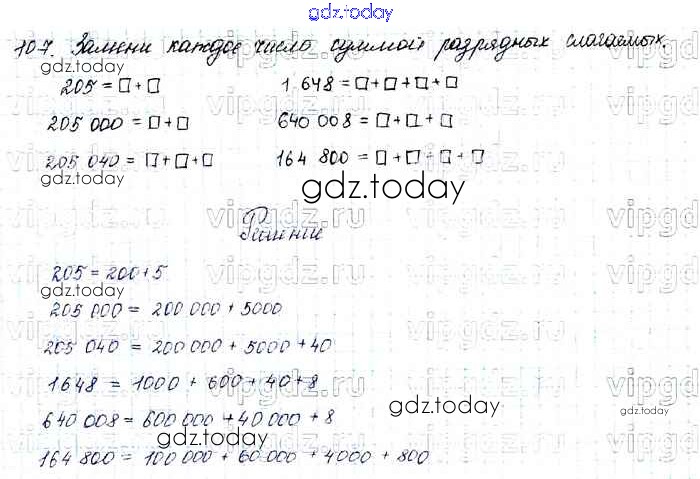 gdz.today
107. Замени каждое число суммой разрядных слагаемых.
205 = □ + □
1 648 = □ + □ + □ + □
205 000 = □ + □
640 008 = □ + □ + □
205 040 = □ + □ + □
164 800 = □ + □ + □ + □
gdz.today
gdz.today
Решение
205 = 200 + 5
gdz.today
205 000 = 200 000 + 5000
205 040 = 200 000 + 5000 + 40
1648 = 1000 + 600 + 40 + 8
640 008 = 600 000 + 40 000 + 8
gdz.today
gdz.today
gdz.today
164 800 = 100 000 + 60 000 + 4000 + 800
vipgdz.ru